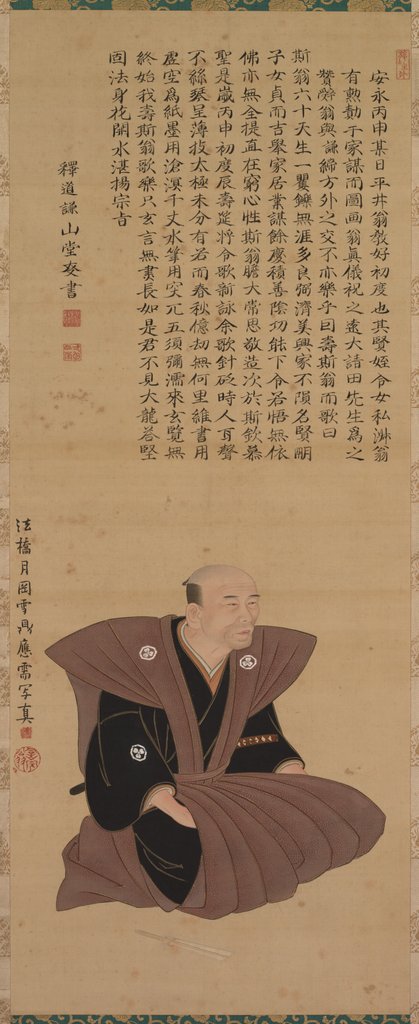 安永丙申某日平井翁敎好初度也其賢姪令女私淋翁
有勲勛于家謀而圖画翁眞儀祝之遠大請田先生為之
賛辭翁與謙締方外之交不亦樂乎曰壽斯翁而歌曰
斯翁六十天生一矍鑠無涯多良弼濟美興家不隕名賢明
子女貞而吉聚家居業謀餘慶積善陰功能下令君悟無依
佛亦無全提直在窮心性斯翁膽大常思敬造次於斯欽慕
聖是歲丙申初度辰壽筵将令歌新詠余歌針砭時人耳聲
不絲琴呈薄技太極未分有若而春秋億劫無何里維書用
虚空為紙墨用滄溟千丈水筆用突兀五須弥濡來玄覧無
終始我壽斯翁歌樂只玄言無書長如是君不見大龍荅堅
固法身花開水湛揚宗旨
釋道謙山堂
書
法橋月岡雪鼎應需写真